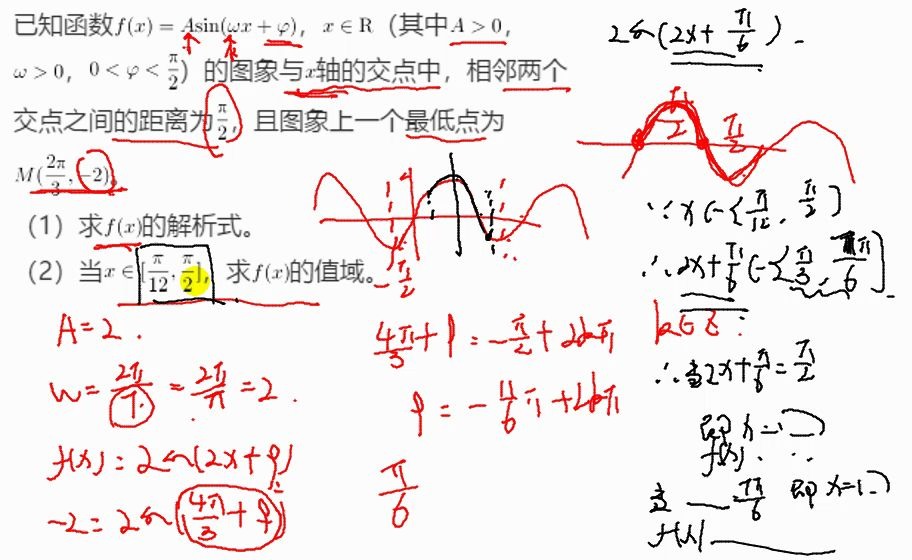 已知函数f(x) = Asin(ωx + φ), x ∈ R (其中A > 0,
ω > 0, 0 < φ < π/2) 的图象与x轴的交点中, 相邻两个
交点之间的距离为π/2, 且图象上一个最低点为
M(2π/3, -2).
(1) 求f(x)的解析式。
(2) 当x ∈ [π/12, π/2], 求f(x)的值域。
A = 2 .
ω = 2π/T = 2π/π = 2 .
f(x) = 2sin(2x + φ)
-2 = 2sin(4π/3 + φ)
-π/2
4π/3 + φ = -π/2 + 2kπ k∈Z .
φ = -11/6 π + 2kπ
π/6
2sin(2x + π/6) .
π/2 π/2
∵ x∈[π/12, π/2]
∴ 2x + π/6 ∈ [π/3, 7π/6]
∴ 当2x + π/6 = π/2
即 x =
f(x)
当 7π/6 即 x =
f(x)